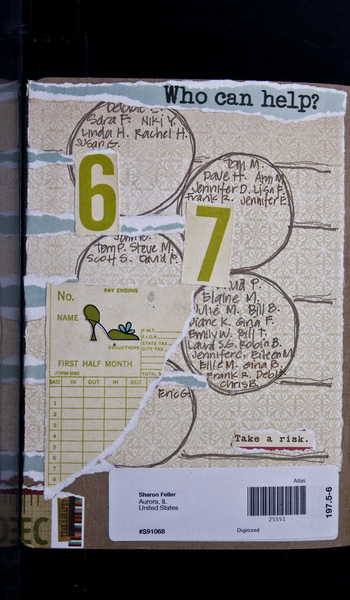 Who can help?
Debbie C.
Sara F. Niki Y.
Linda H. Rachel H.
Susan G.
6
Tom M.
Dave H. Ann M.
Jennifer D. Lisa F.
Frank R. Jennifer E.
7
John
Tom P. Steve M.
Scott S. David P.
Elaine M.
Julie M. Bill B.
Diane K. Gina F.
Emily W. Bill T.
Laura S.G. Robin B.
Jennifer C. Eileen M
Ellie M. Gina B.
Frank R. Debi
Chris B.
Eric G.
No.
PAY ENDING
NAME
F.W.T.
F.I.C.A.
STATE TAX
CITY TAX
DEDUCTIONS
FIRST HALF MONTH
TOTAL
DATE IN OUT IN OUT
1
2
3
4
5
6
7
8
Take a risk.
DEC
Sharon Feller
Aurora, IL
United States
#S91068
Atlas
25551
Digitized
197.5-6